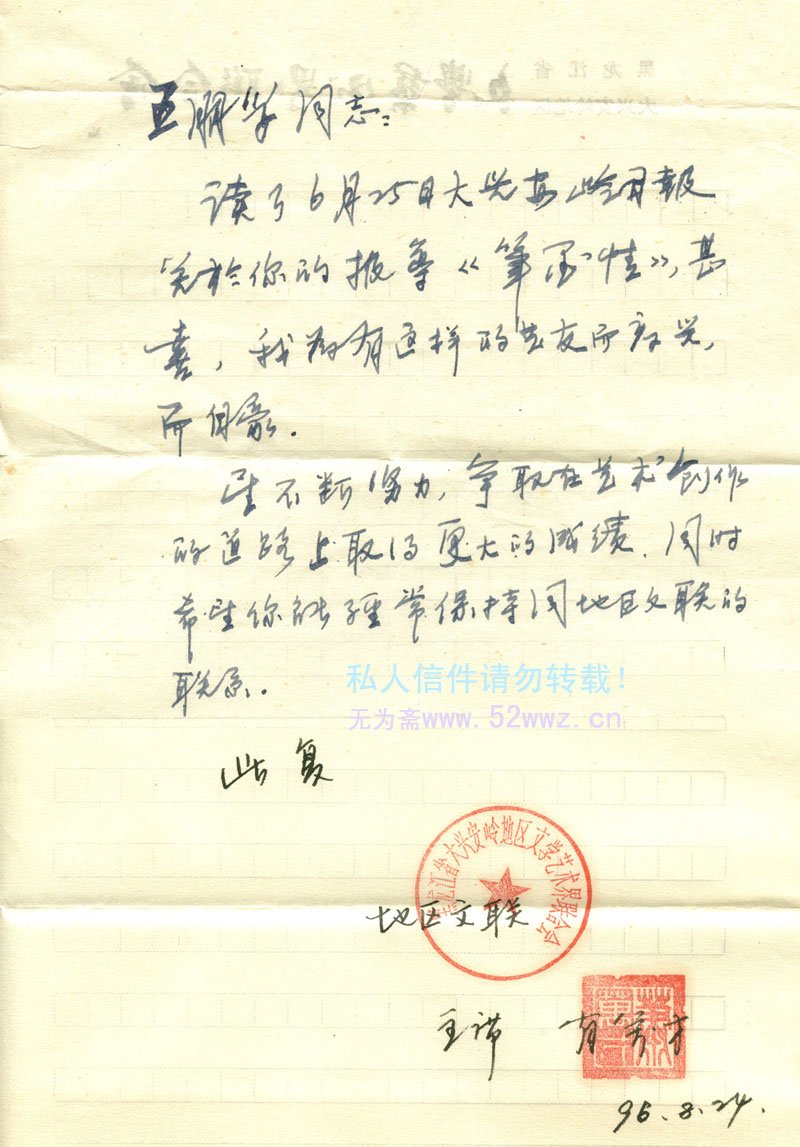 黑龙江省
王鹏学同志:
读了6月25日大兴安岭日报
关於你的报导《笔墨情》,甚
喜,我为有这样的艺友而高兴,
而自豪.
望不断努力,争取在艺术创作
的道路上取得更大的成绩.同时
希望你能经常保持同地区文联的
联系.
私人信件请勿转载!
无为斋www.52wwz.cn
此复
黑龙江省大兴安岭地区文学艺术界联合会
地区文联
主席
96.8.24.